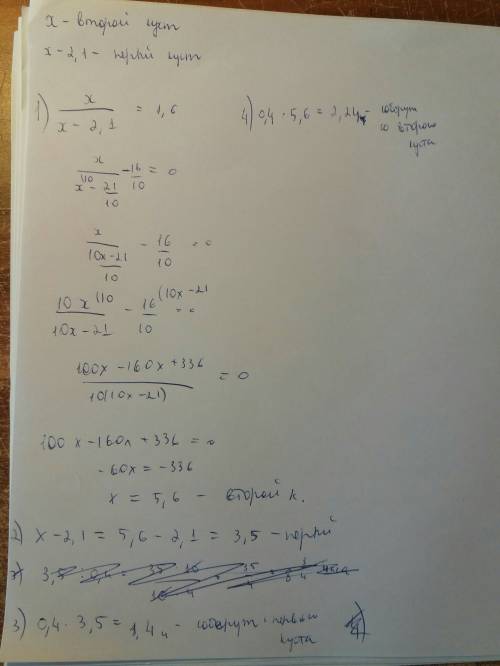 x - второй куст
x - 2,1 - первый куст
1) x / (x - 2,1) = 1,6
x / (x - 21/10) - 16/10 = 0
x / ((10x - 21)/10) - 16/10 = 0
10x (10 / (10x - 21) - 16 (10x - 21 / 10 = 0
(100x - 160x + 336) / (10(10x - 21)) = 0
100x - 160x + 336 = 0
- 60x = - 336
x = 5,6 - второй к.
2) x - 2,1 = 5,6 - 2,1 = 3,5 - первый
3) 0,4 · 3,5 = 1,4 - соберут с первого
куста
4) 0,4 · 5,6 = 2,24 - соберут
со второго
куста